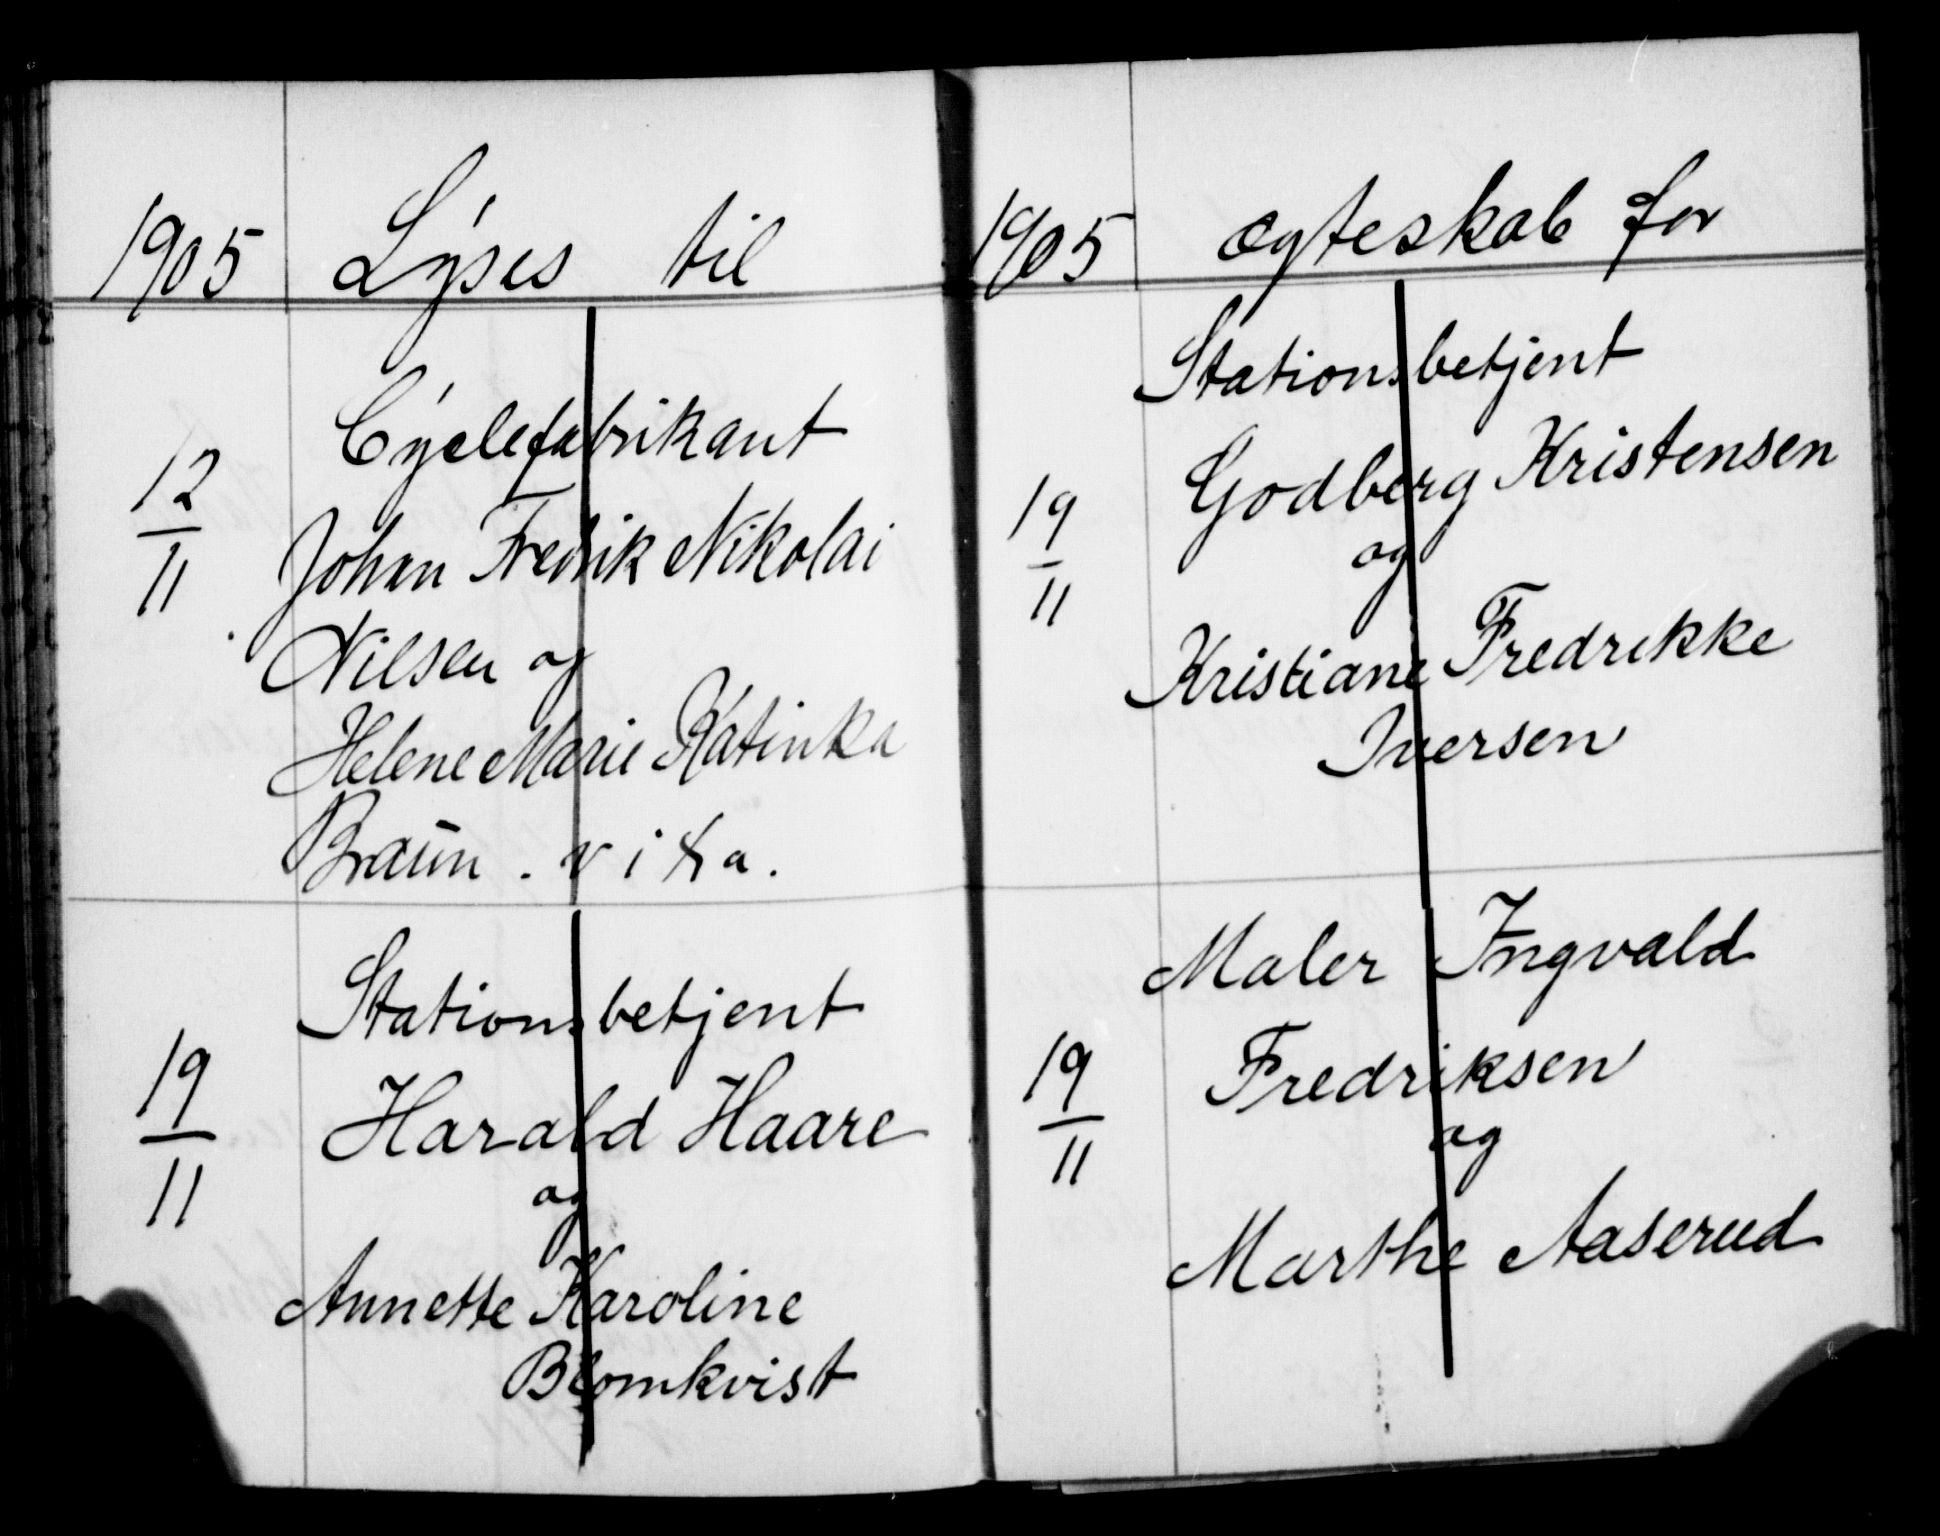 1905 Lyses til
Cyclefabrikant
12
11
Johan Fredrik Nikolai
Nilsen og
Helene Marie Katinka
Braun. v i x a.
Stationsbetjent
19
11
Harald Haare
og
Annette Karoline
Blomkvist
1905 ægteskab for
Stationsbetjent
Godberg Kristensen
19
11
og
Kristiane Fredrikke
Iversen
Maler Ingvald
19
11
Fredriksen
og
Marthe Aaserud